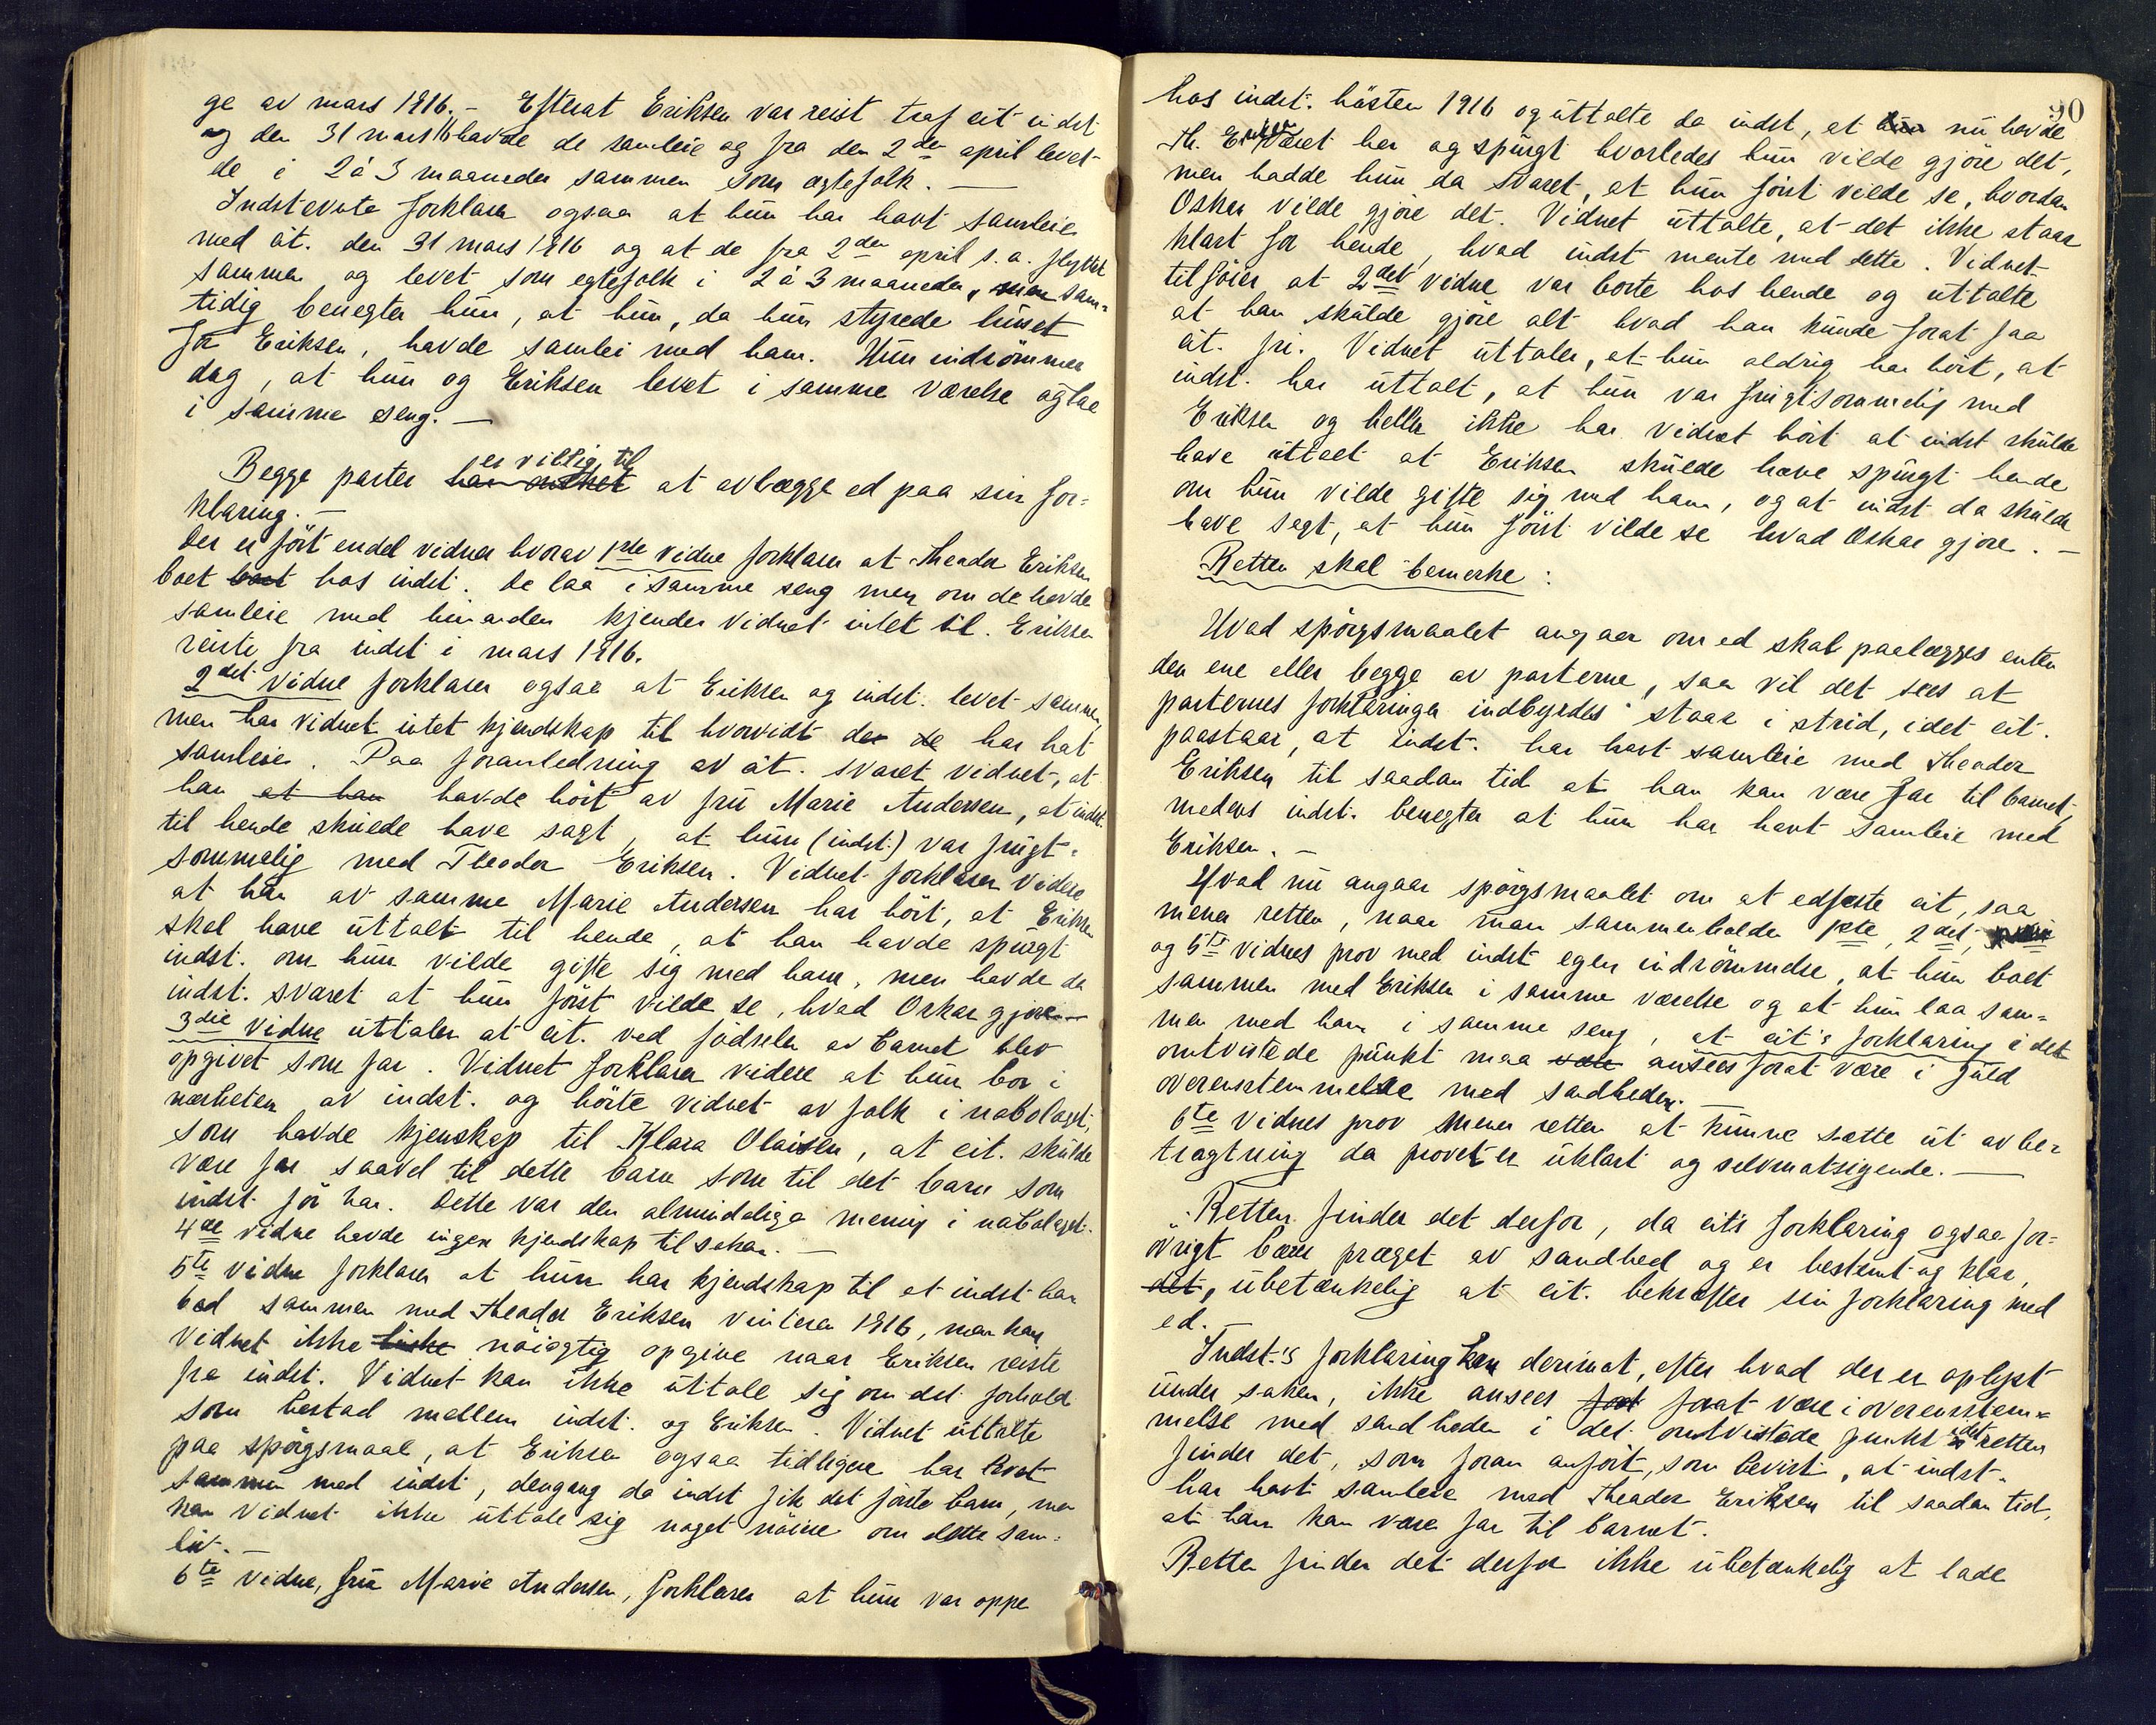 ge av mars 1916. - Efterat Eriksen var reist traf cit indst
og den 31 mars 16 havde de samleie og fra den 2den april levet-
de i 2 à 3 maaneder sammen som ægtefolk. —
Indstevnte forklarer ogsaa at hun har havt samleie
med cit. den 31 mars 1916 og at de fra 2den april s.a. flyttet
sammen og levet som egtefolk i 2 à 3 maaneder, men sam-
tidig benegter hun, at hun, da hun styrede huset
for Eriksen, havde samlei med ham. Hun indrömmer
dog, at hun og Eriksen levet i samme værelse og laa
i samme seng. —
Begge parter har önsket er villig til at avlægge ed paa sin for-
klaring. —
Der er fört endel vidner hvorav 1ste vidne forklarer at Theodor Eriksen
boet boet hos indst. De laa i samme seng men om de havde
samleie med hinanden kjender vidnet intet til. Eriksen
reiste fra indst i mars 1916.
2det vidne forklarer ogsaa at Eriksen og indst. levet sammen,
men har vidnet intet kjendskap til hvorvidt der de har hat
samleie. Paa foranledning av cit. svaret vidnet, at
han at han havde hört av fru Marie Andersen, at indst.
til hende skulde have sagt, at hun (indst.) var frugt-
sommelig med Theodor Eriksen. Vidnet forklarer videre
at han av samme Marie Andersen har hört, at Eriksen
skal have uttalt til hende, at han havde spurgt
indst. om hun vilde gifte sig med ham, men havde da
indst. svaret at hun först vilde se, hvad Oskar gjore —
3die vidne uttaler at cit. ved födselen av barnet blev
opgivet som far. Vidnet forklarer videre at hun bor i
nærheten av indst. og hörte vidnet av folk i nabolaget,
som havde kjenskap til Klara Olaisen, at cit. skulde
være far saavel til dette barn som til det barn som
indst för har. Dette var den almindelige mening i nabolaget.
4de vidne havde ingen kjendskap til saken. —
5te vidne forklarer at hun har kjendskap til at indst har
bod sammen med Theodor Eriksen vinteren 1916, men kan
vidnet ikke nöiagtig opgive naar Eriksen reiste
fra indst. Vidnet kan ikke uttale sig om det forhold
som bestod mellem indst. og Eriksen. Vidnet uttalte
paa spörgsmaal, at Eriksen ogsaa tidligere har levet
sammen med indst, dengang da indst fik det förste barn, men
kan vidnet ikke uttale sig noget nöiere om dette sam-
liv. —
6te vidne, fru Marie Andersen, forklarer at hun var oppe
90
hos indst. hösten 1916 og uttalte da indst, at hun nu havde
Th. Eriksen været her og spurgt hvorledes hun vilde gjöre det,
men hadde hun da svaret, at hun först vilde se, hvordan
Oskar vilde gjöre det. Vidnet uttalte, at det ikke staar
klart for hende, hvad indst mente med dette. Vidnet
tilföier at 2det vidne var borte hos hende og uttalte
at han skulde gjöre alt hvad han kunde forat faa
cit. fri. Vidnet uttaler, at hun aldrig har hört, at
indst. har uttalt, at hun var frugtsommelig med
Eriksen og heller ikke har vidnet hört at indst skulde
have uttalt at Eriksen skulde have spurgt hende
om hun vilde gifte sig med ham, og at indst da skulde
have sagt, at hun först vilde se hvad Oskar gjore. —
Retten skal bemerke:
Hvad spörgsmaalet angaar om ed skal paalægges enten
den ene eller begge av parterne, saa vil det sees at
parternes forklaringer indbyrdes staar i strid, idet cit.
paastaar, at indst. har havt samleie med Theodor
Eriksen til saadan tid at han kan være far til barnet,
medens indst. benegter at hun har havt samleie med
Eriksen. —
Hvad nu angaar spörgsmaalet om at edfæste cit, saa
mener retten, naar man sammenholder 1ste, 2det,
og 5te vidnes prov med indst egen indrömmelse, at hun boet
sammen med Eriksen i samme værelse og at hun laa sam-
men med ham i samme seng, at cit's forklaring i det
omtvistede punkt maa være ansees forat være i fuld
overensstemmelse med sandheden.
6te vidnes prov mener retten at kunne sætte ut av be-
tragtning da provet er uklart og selvmotsigende. —
Retten finder det derfor, da cit's forklaring ogsaa for-
övrigt bærer præget av sandhed og er bestemt og klar,
det, ubetænkelig at cit. bekræfter sin forklaring med
ed.
Indst.'s forklaring kan derimot, efter hvad der er oplyst
under saken, ikke ansees forat være i overensstem-
melse med sandheden i det omtvistede punkt idet retten
finder det, som foran anfört, som bevist, at indst.
har havt samleie med Theodor Eriksen til saadan tid,
at han kan være far til barnet.
Retten finder det derfor ikke ubetænkelig at lade